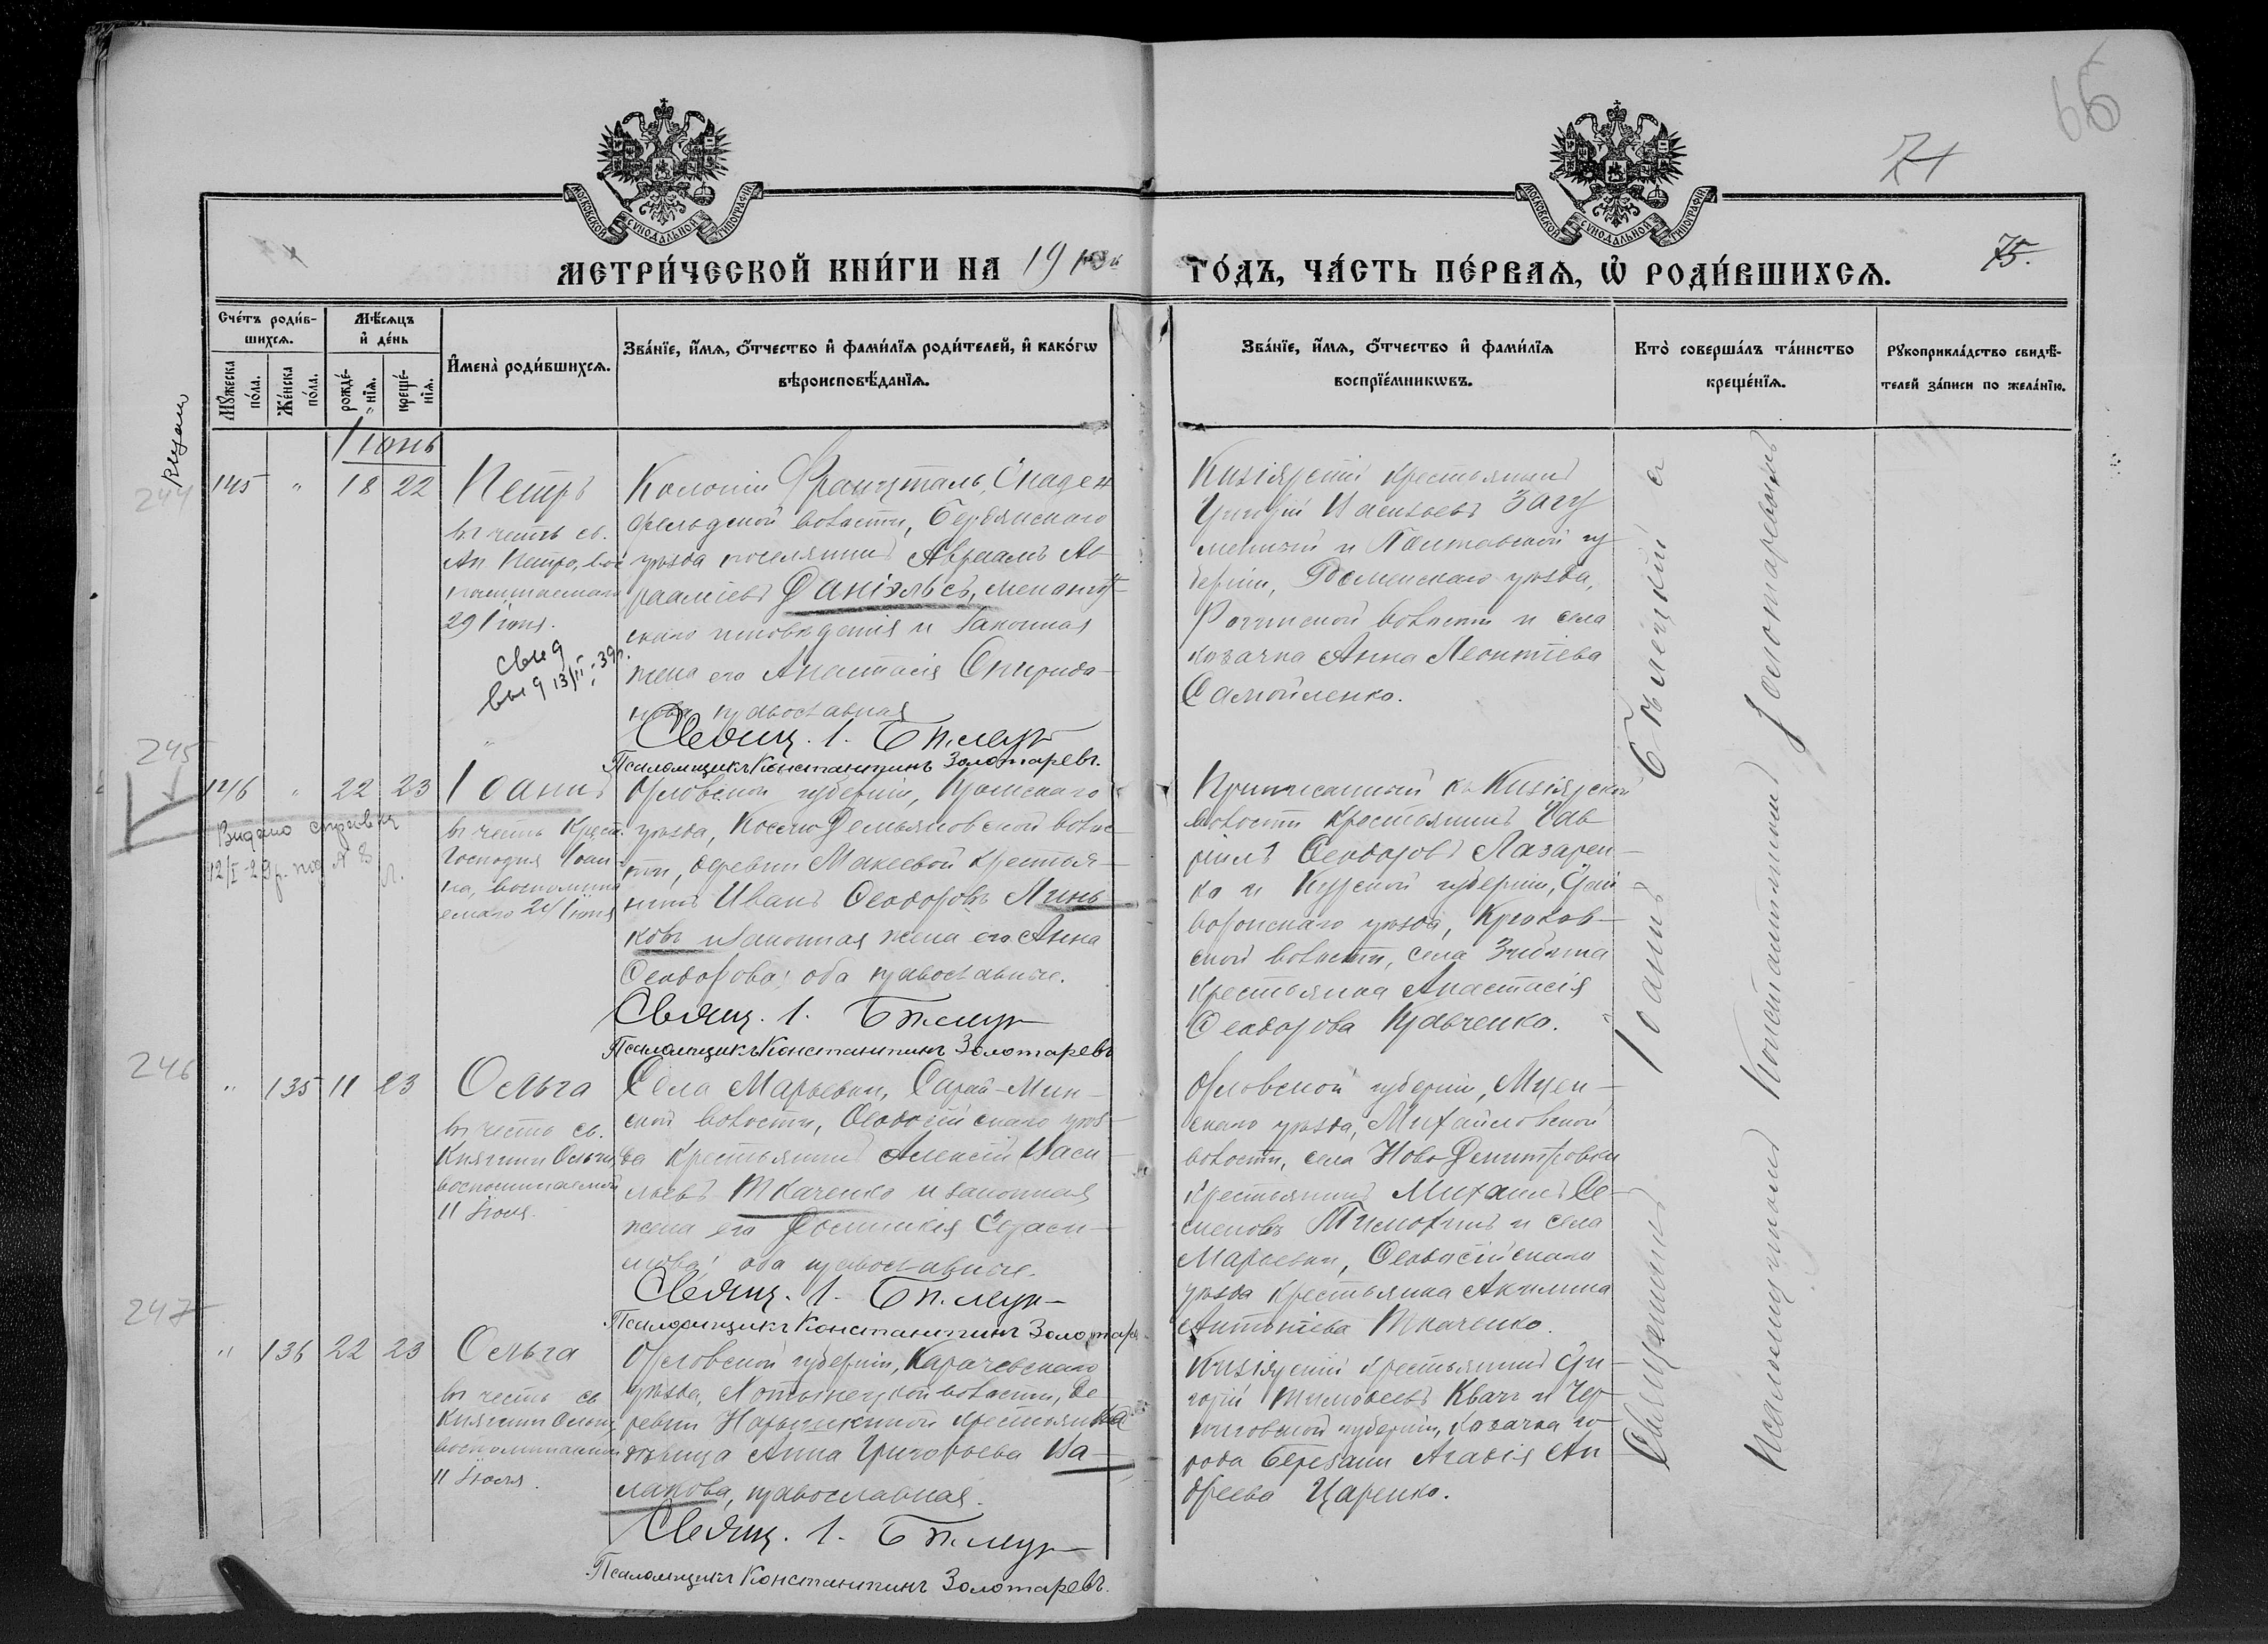 66
71
75.
МОСКОВСКОЙ СѴНОДАЛЬНОЙ ТИПОГРАФІИ
МОСКОВСКОЙ СѴНОДАЛЬНОЙ ТИПОГРАФІИ
МЕТРИ́ЧЕСКОЙ КНИ́ГИ НА 19
ГО́ДЪ, ЧА́СТЬ ПЕ́РВАЯ, Ѡ҆ РОДИ́ВШИХСЯ.
Сче́тъ роди́вшихся.
Мꙋ́жеска по́ла.
Же́нска по́ла.
Мѣ́сяцъ и҆ де́нь
рожде́нїя.
креще́нїя.
И҆мена̀ роди́вшихся.
Зва́нїе, и҆́мя, ѻ҆́тчество и҆ фами́лїя роди́телей, и҆ како́гѡ
вѣроисповѣ́данїя.
Зва́нїе, и҆́мя, ѻ҆́тчество и҆ фами́лїя
воспрїе́мникѡвъ.
Кто̀ соверша́лъ та́инство
креще́нїя.
Рꙋкоприкла́дство свидѣ́-
телей за́писи по жела́нїю.
Іюнь
244
145 " 18 22
Петръ
въ честь св.
Ап Петра, вос
29 Іюня.
выд 13/II-39г.
Колоніи Францталь, Гнаден
фельдской волости, Бердянскаго
уѣзда поселянинъ Авраамъ Ав-
рааміевъ Даніэльсъ, менонит-
скаго исповѣданія и законная
жена его Анастасія Спиридо-
нова православная
Свящ. І. Бѣлецк
Псаломщикъ Константинъ Золотаревъ.
Кизіярскій крестьянинъ
Григорій Васильевъ Загу
менный и Полтавской гу
берніи, Роменскаго уѣзда,
волости и села
козачка Анна Леонтіева
Самойленко.
245
146 " 22 23
Видано справку
12/I-29р. под
Іоаннъ
въ честь Крест.
Господня Іоан
на, воспомина
емаго 24 Іюня
Орловской губерніи, Кромскаго
уѣзда, Космо-Демьяновской волос-
ти, деревни Макеевой крестья-
нинъ Иванъ Ѳеодоровъ Линь-
ковъ и законная жена его Анна
Ѳеодорова; оба православные.
Свящ. І. Бѣлецк
Псаломщикъ Константинъ Золотаревъ
Приписанный къ Кизіярской
волости крестьянинъ Гав
ріилъ Ѳеодоровъ Лазарен-
ко и Курской губерніи, Грай-
воронскаго уѣзда, Крюков-
ской волости, села
крестьянка Анастасія
Ѳеодорова Кравченко.
246
" 135 11 23
Ольга
въ честь св.
Княгини Ольги,
воспоминаемой
11 Іюля.
Села Марьевки, Сарай-Мин-
ской волости, Ѳеодосійскаго уѣз-
да крестьянинъ Алексій Васи-
льевъ Ткаченко и законная
жена его Домникія Гераси-
мова; оба православные.
Свящ. І. Бѣлецк
Псаломщикъ Константинъ Золотаре
Орловской губерніи, Мцен-
скаго уѣзда, Михайловской
волости, села Ново-Димитровки
крестьянинъ Михаилъ Се-
меновъ Тимохинъ и села
Марьевки, Ѳеодосійскаго
уѣзда крестьянка Акилина
Антоніева Ткаченко.
247
" 136 22 23
Ольга
въ честь св
Княгини Ольги,
воспоминаемой
11 Іюля.
Орловской губерніи, Карачевскаго
уѣзда, Хотынецкой волости, де-
ревни Нарышкиной крестьянка
дѣвица Анна Григорьева Ва-
лакова, православная.
Свящ. І. Бѣлецк
Псаломщикъ Константинъ Золотаревъ.
Кизіярскій крестьянинъ Гри-
горій Тимоѳеевъ Квач и Чер-
ниговской губерніи, козачка го-
рода Березани Агафія Ан
дреева Царенко.
Священникъ Іоаннъ Бѣлецкій и
Псаломщикъ Константинъ Золотаревъ